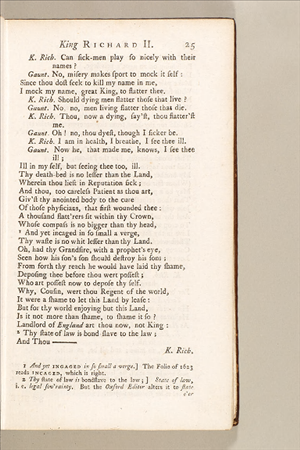 King RICHARD II. 25
K. Rich. Can ſick-men play ſo nicely with their
names?
Gaunt. No, miſery makes ſport to mock it ſelf:
Since thou doſt ſeek to kill my name in me,
I mock my name, great King, to flatter thee.
K. Rich. Should dying men flatter thoſe that live?
Gaunt. No. no, men living flatter thoſe that die.
K. Rich. Thou, now a dying, ſay'ſt, thou flatter'ſt
me.
Gaunt. Oh! no, thou dyeſt, though I ſicker be.
K. Rich. I am in health, I breathe, I ſee thee ill.
Gaunt. Now he, that made me, knows, I ſee thee
ill;
Ill in my ſelf, but ſeeing thee too, ill.
Thy death-bed is no leſſer than the Land,
Wherein thou lieſt in Reputation ſick;
And thou, too careleſs Patient as thou art,
Giv'ſt thy anointed body to the cure
Of thoſe phyſicians, that firſt wounded thee:
A thouſand flatt'rers ſit within thy Crown,
Whoſe compaſs is no bigger than thy head,
1 And yet incaged in ſo ſmall a verge,
Thy waſte is no whit leſſer than thy Land.
Oh, had thy Grandſire, with a prophet's eye,
Seen how his ſon's ſon ſhould deſtroy his ſons;
From forth thy reach he would have laid thy ſhame,
Depoſing thee before thou wert poſſeſt;
Who art poſſeſt now to depoſe thy ſelf.
Why, Couſin, wert thou Regent of the world,
It were a ſhame to let this Land by leaſe:
But for thy world enjoying but this Land,
Is it not more than ſhame, to ſhame it ſo?
Landlord of England art thou now, not King:
2 Thy ſtate of law is bond ſlave to the law;
And Thou———
K. Rich.
1 And yet INGAGED in ſo ſmall a verge.] The Folio of 1623
reads INCAGED, which is right.
2 Thy ſtate of law is bondſlave to the law;] State of law,
i. e. legal ſov'rainty. But the Oxford Editor alters it to ſtate
o'er